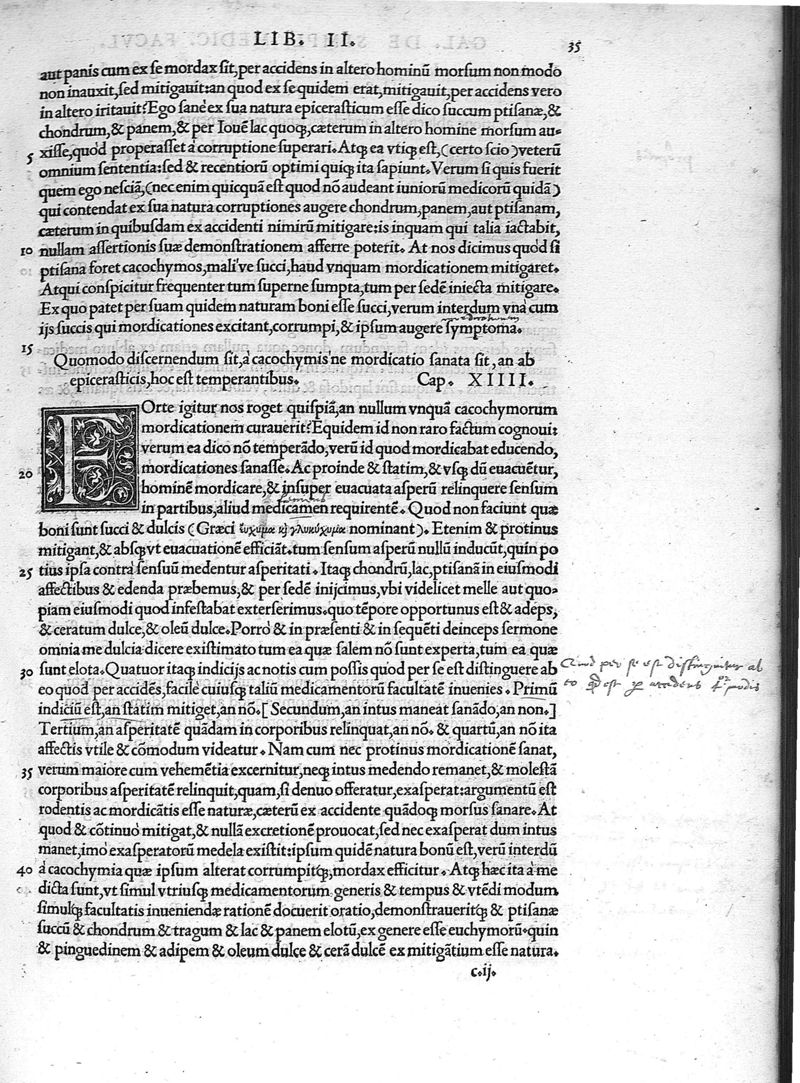 LIB. II. 35
aut panis cum ex se mordax sit, per accidens in altero hominū morsum non modo
non inauxit, sed mitigauit: an quod ex se quidem erat, mitigauit, per accidens vero
in altero iritauit? Ego sanè ex sua natura epicerasticum esse dico succum ptisanæ, &
chondrum, & panem, & per Iouem lac quoq;, cæterum in altero homine morsum au-
5 xisse, quòd properasset à corruptione superari. Atq; ea vtiq; est, (certo scio) veterū
omnium sententia: sed & recentiorū optimi quiq; ita sapiunt. Verum si quis fuerit
quem ego nesciā, (nec enim quicquā est quod nō audeant iuniorū medicorū quidā)
qui contendat ex sua natura corruptiones augere chondrum, panem, aut ptisanam,
cæterum in quibusdam ex accidenti nimirū mitigare: is inquam qui talia iactabit,
10 nullam assertionis suæ demonstrationem afferre poterit. At nos dicimus quòd si
ptisana foret cacochymos, mali've succi, haud vnquam mordicationem mitigaret.
Atqui conspicitur frequenter tum superne sumpta, tum per sedē iniecta mitigare.
Ex quo patet per suam quidem naturam boni esse succi, verum interdum vnà cum
ijs succis qui mordicationes excitant, corrumpi, & ipsum augere symptoma.
15
Quomodo discernendum sit, à cacochymis ne mordicatio sanata sit, an ab
epicerasticis, hoc est temperantibus. Cap. XIIII.
FOrte igitur nos roget quispiā, an nullum vnquā cacochymorum
mordicationem curauerit? Equidem id non raro factum cognoui:
verum ea dico nō temperādo, verū id quod mordicabat educendo,
20 mordicationes sanasse. Ac proinde & statim, & vsq; dū euacuētur,
hominē mordicare, & insuper euacuata asperū relinquere sensum
in partibus, aliud medicamen requirentē. Quod non faciunt quæ
boni sunt succi & dulcis (Græci ἔυχυμα κỳ γλυκύχυμα nominant). Etenim & protinus
mitigant, & absq; vt euacuationē efficiāt. tum sensum asperū nullū inducūt, quin po
25 tius ipsa contra sensuū medentur asperitati. Itaq; chondrū, lac, ptisanā in eiusmodi
affectibus & edenda præbemus, & per sedē inijcimus, vbi videlicet melle aut quo-
piam eiusmodi quod infestabat exterserimus. quo tēpore opportunus est & adeps,
& ceratum dulce, & oleū dulce. Porrò & in præsenti & in sequēti deinceps sermone
omnia me dulcia dicere existimato tum ea quæ salem nō sunt experta, tum ea quæ
30 sunt elota. Quatuor itaq; indicijs ac notis cum possis quod per se est distinguere ab
Quid per se est distinguitur ab
eo quod per accidēs, facilè cuiusq; taliū medicamentorū facultatē inuenies. Primū
eo quod est per accidens 4or modis
indiciū est, an statim mitiget, an nō. [Secundum, an intus maneat sanādo, an non.]
Tertium, an asperitatē quādam in corporibus relinquat, an nō. & quartū, an nō ita
affectis vtile & cōmodum videatur. Nam cum nec protinus mordicationē sanat,
35 verum maiore cum vehemētia excernitur, neq; intus medendo remanet, & molestā
corporibus asperitatē relinquit, quam, si denuo offeratur, exasperat: argumētū est
rodentis ac mordicātis esse naturæ, cæterū ex accidente quādoq; morsus sanare. At
quod & cōtinuò mitigat, & nullā excretionē prouocat, sed nec exasperat dum intus
manet, imò exasperatorū medela existit: ipsum quidē natura bonū est, verū interdū
40 à cacochymia quæ ipsum alterat corrumpitq́;, mordax efficitur. Atq; hæc ita à me
dicta sunt, vt simul vtriusq; medicamentorum generis & tempus & vtēdi modum
simulq; facultatis inueniendæ rationē docuerit oratio, demonstraueritq́; & ptisanæ
succū & chondrum & tragum & lac & panem elotū, ex genere esse euchymorū. quin
& pinguedinem & adipem & oleum dulce & cerā dulcē ex mitigātium esse natura.
c.ij.